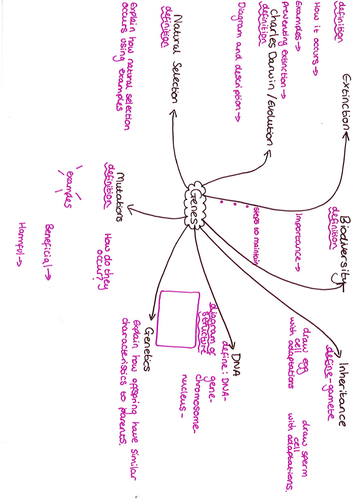 Extinction
definition
How it occurs →
Examples →
preventing extinction →
Biodiversity
definition
Importance →
steps to maintain
Inheritance
define - gamete
draw egg
cell
with adaptations
draw sperm
cell
with adaptations
Charles Darwin / Evolution
definition
Diagram and description →
Genes
DNA
define: DNA -
gene -
chromosome -
nucleus -
diagram of
structure
Natural Selection
definition
Explain how natural selection
occurs using examples
Mutations
definition
How do they
occur?
examples
Beneficial →
Harmful →
Genetics
Explain how offspring have similar
characteristics to parents.